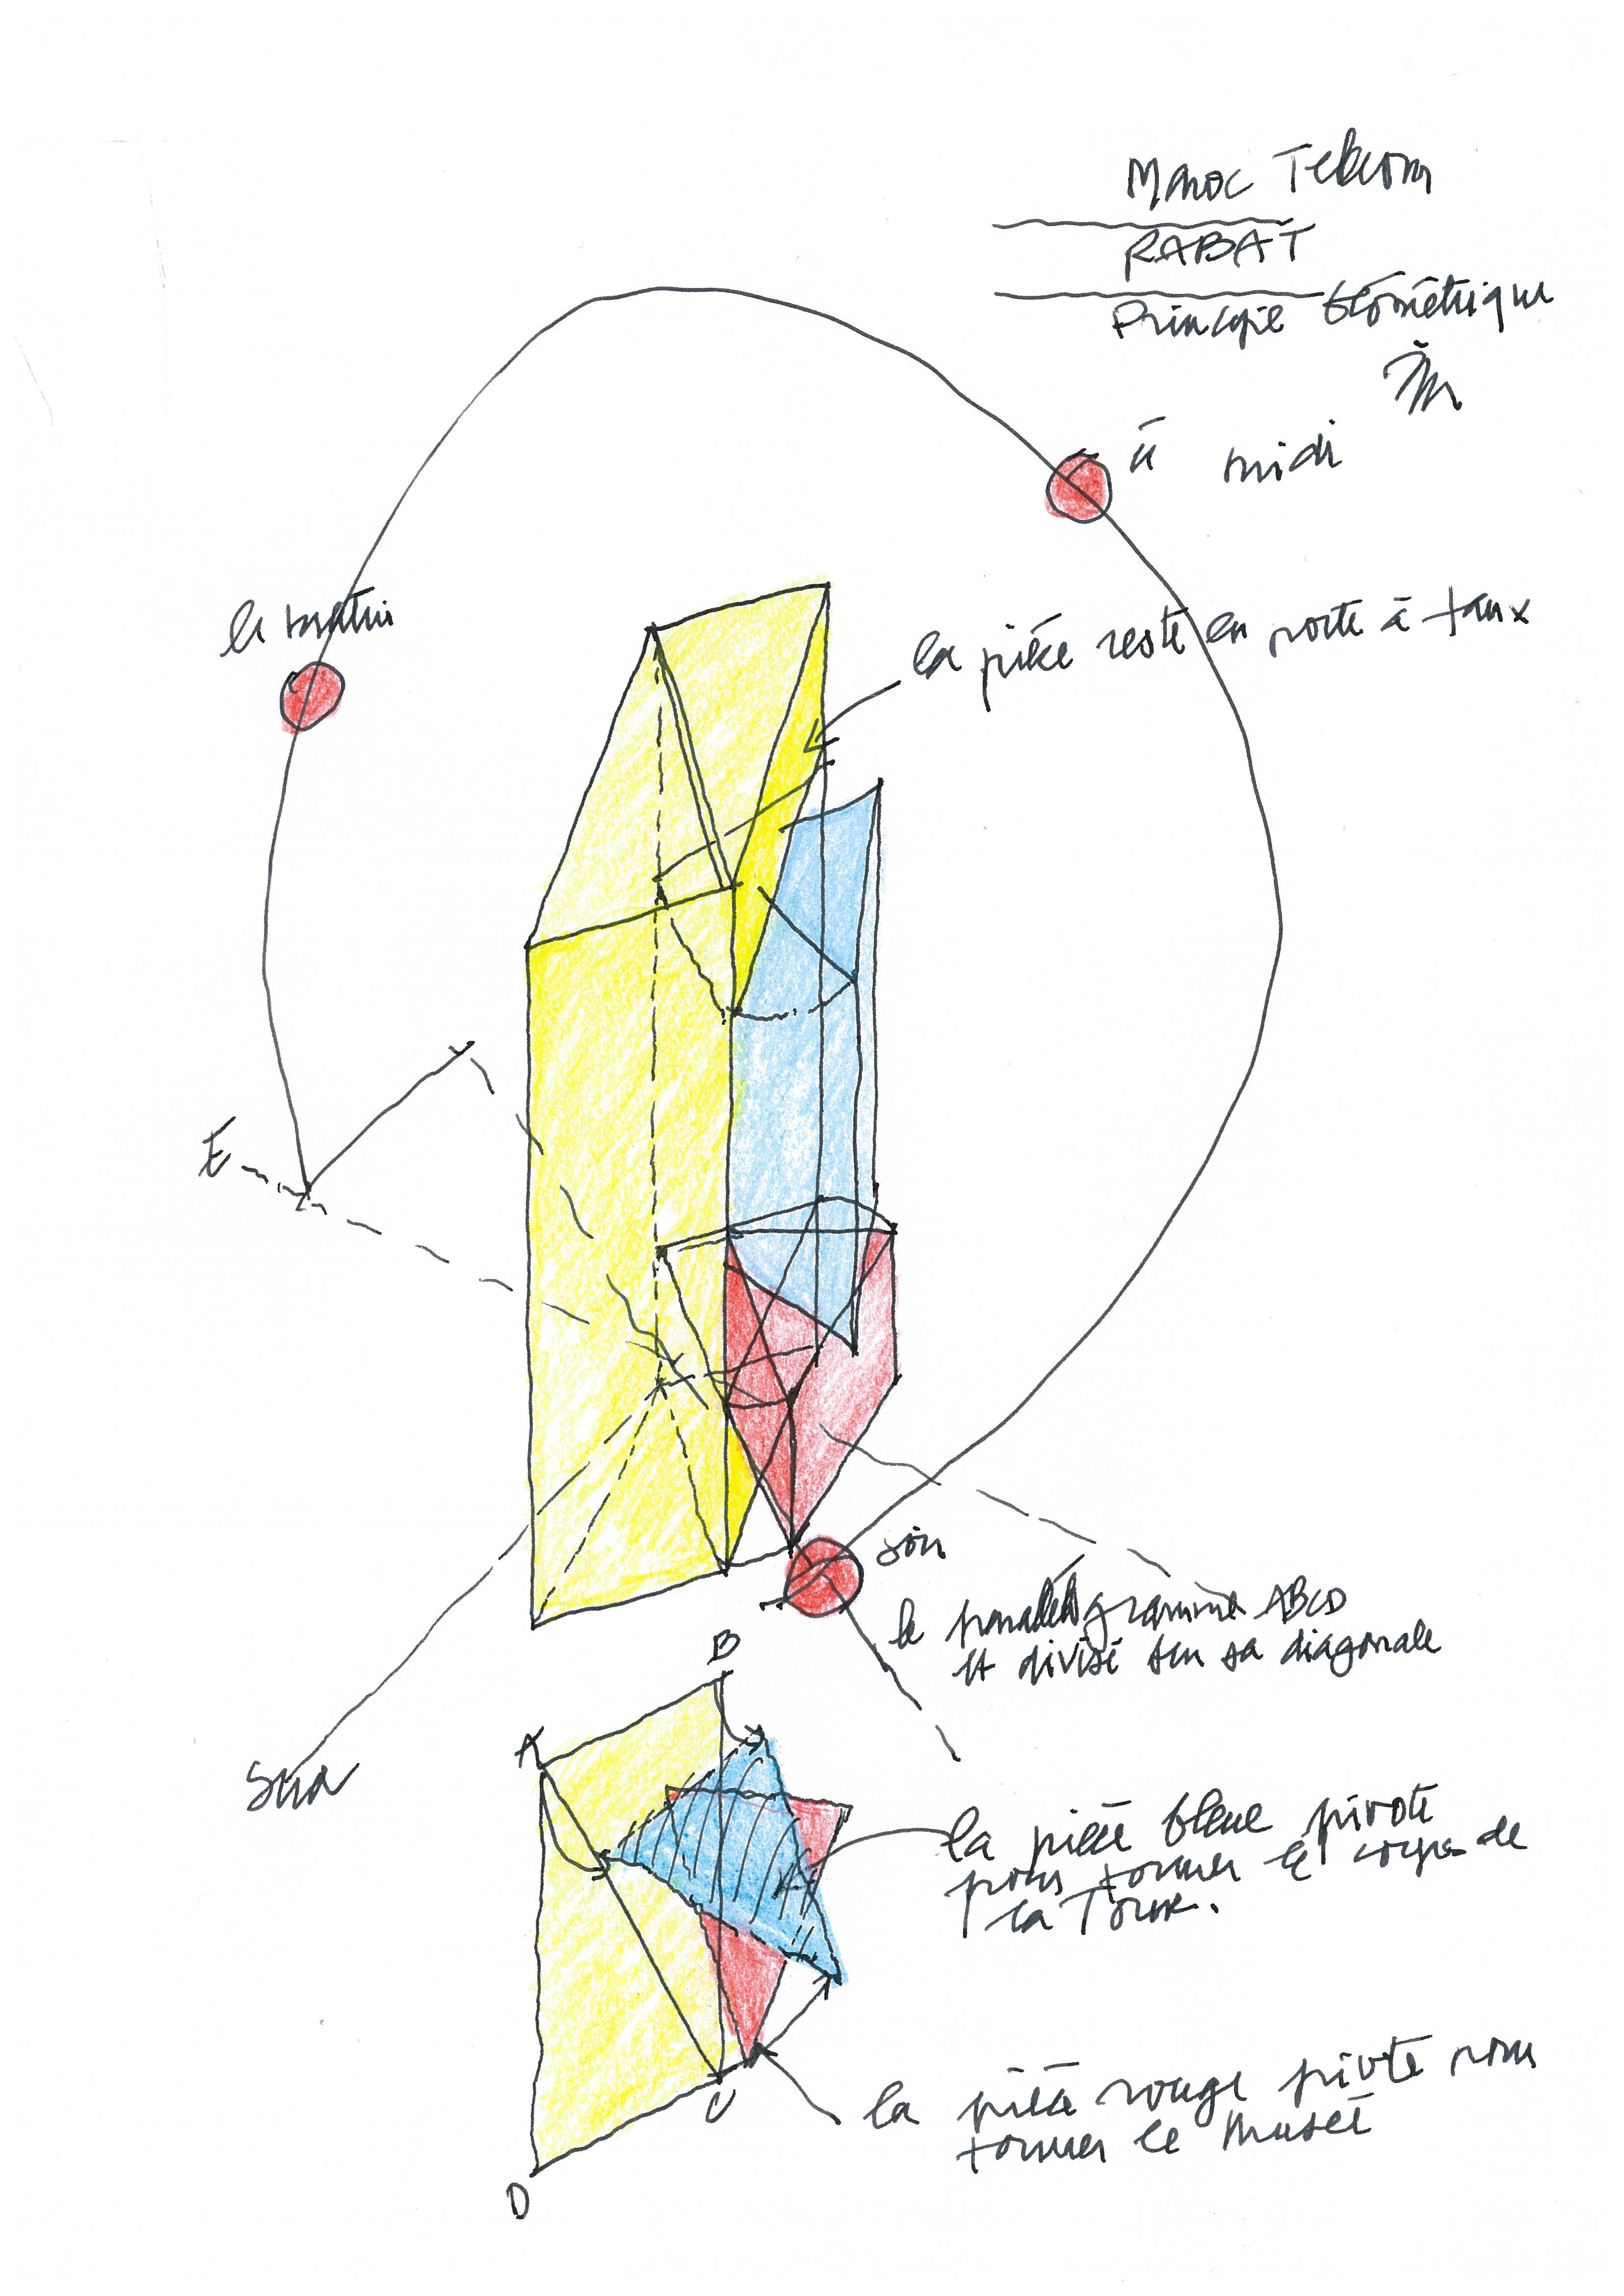 Maroc Telecom
RABAT
Principe Géométrique
à midi
le matin
la pièce reste en porte à faux
E
soir
le parallélogramme ABCD
est divisé sur sa diagonale
B
A
Sud
la pièce bleue pivote
pour former le corps de
la Tour.
C
la pièce rouge pivote pour
former le Musée
D